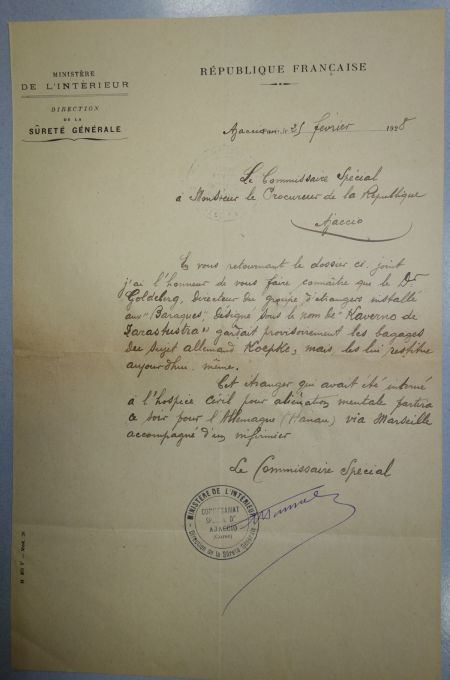 MINISTÈRE
DE L'INTÉRIEUR
DIRECTION
DE LA
SÛRETÉ GÉNÉRALE
RÉPUBLIQUE FRANÇAISE
Ajaccio le 25 février 1928
Le Commissaire Spécial
à Monsieur le Procureur de la République
Ajaccio
En vous retournant le dossier ci-joint
j'ai l'honneur de vous faire connaître que le Dr
Goldberg, Directeur du groupe d'étrangers installé
aux "Baraques", désigné sous le nom de "Kaverno de
Zarashustra" gardait provisoirement les bagages
du sujet allemand Koepke, mais les lui restitue
aujourd'hui même.
Cet étranger qui avait été interné
à l'hospice civil pour aliénation mentale partira
ce soir pour l'Allemagne (Hanau) via Marseille
accompagné d'un infirmier
Le Commissaire Spécial
MINISTÈRE DE L'INTÉRIEUR
COMMISSARIAT
SPÉCIAL D'
AJACCIO
(Corse)
Direction de la Sûreté Générale